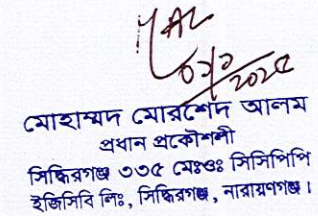 ২০২৫
মোহাম্মদ মোরশেদ আলম
প্রধান প্রকৌশলী
সিদ্ধিরগঞ্জ ৩৩৫ মেঃওঃ সিসিপিপি
ইজিসিবি লিঃ, সিদ্ধিরগঞ্জ, নারায়ণগঞ্জ।